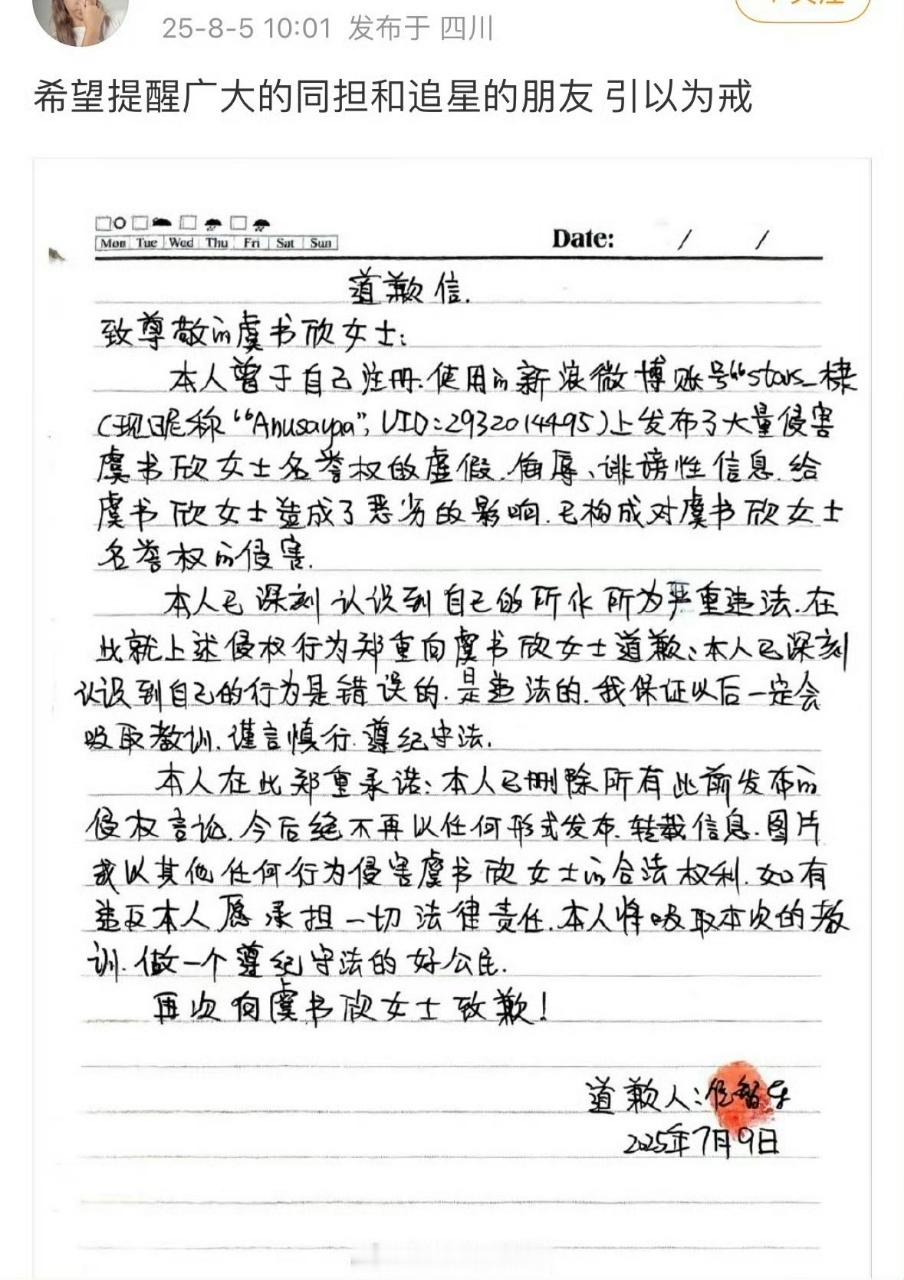 25-8-5 10:01 发布于 四川
希望提醒广大的同担和追星的朋友 引以为戒
Mon Tue Wed Thu Fri Sat Sun
Date: / /
道歉信.
致尊敬的虞书欣女士:
本人曾于自己注册.使用的新浪微博账号“stars_棣
(现昵称“Anusaypa”, UID:2932014495)上发布了大量侵害
虞书欣女士名誉权的虚假.侮辱、诽谤性信息.给
虞书欣女士造成了恶劣的影响.已构成对虞书欣女士
名誉权的侵害.
本人已深刻认识到自己的所作所为严重违法.在
此就上述侵权行为郑重向虞书欣女士道歉:本人已深刻
认识到自己的行为是错误的.是违法的.我保证以后一定会
吸取教训.谨言慎行.遵纪守法.
本人在此郑重承诺:本人已删除所有此前发布的
侵权言论.今后绝不再以任何形式发布.转载信息.图片
或以其他任何行为侵害虞书欣女士的合法权利.如有
违反本人愿承担一切法律责任.本人将吸取本次的教
训.做一个遵纪守法的好公民.
再次向虞书欣女士致歉!
道歉人:
2025年7月9日